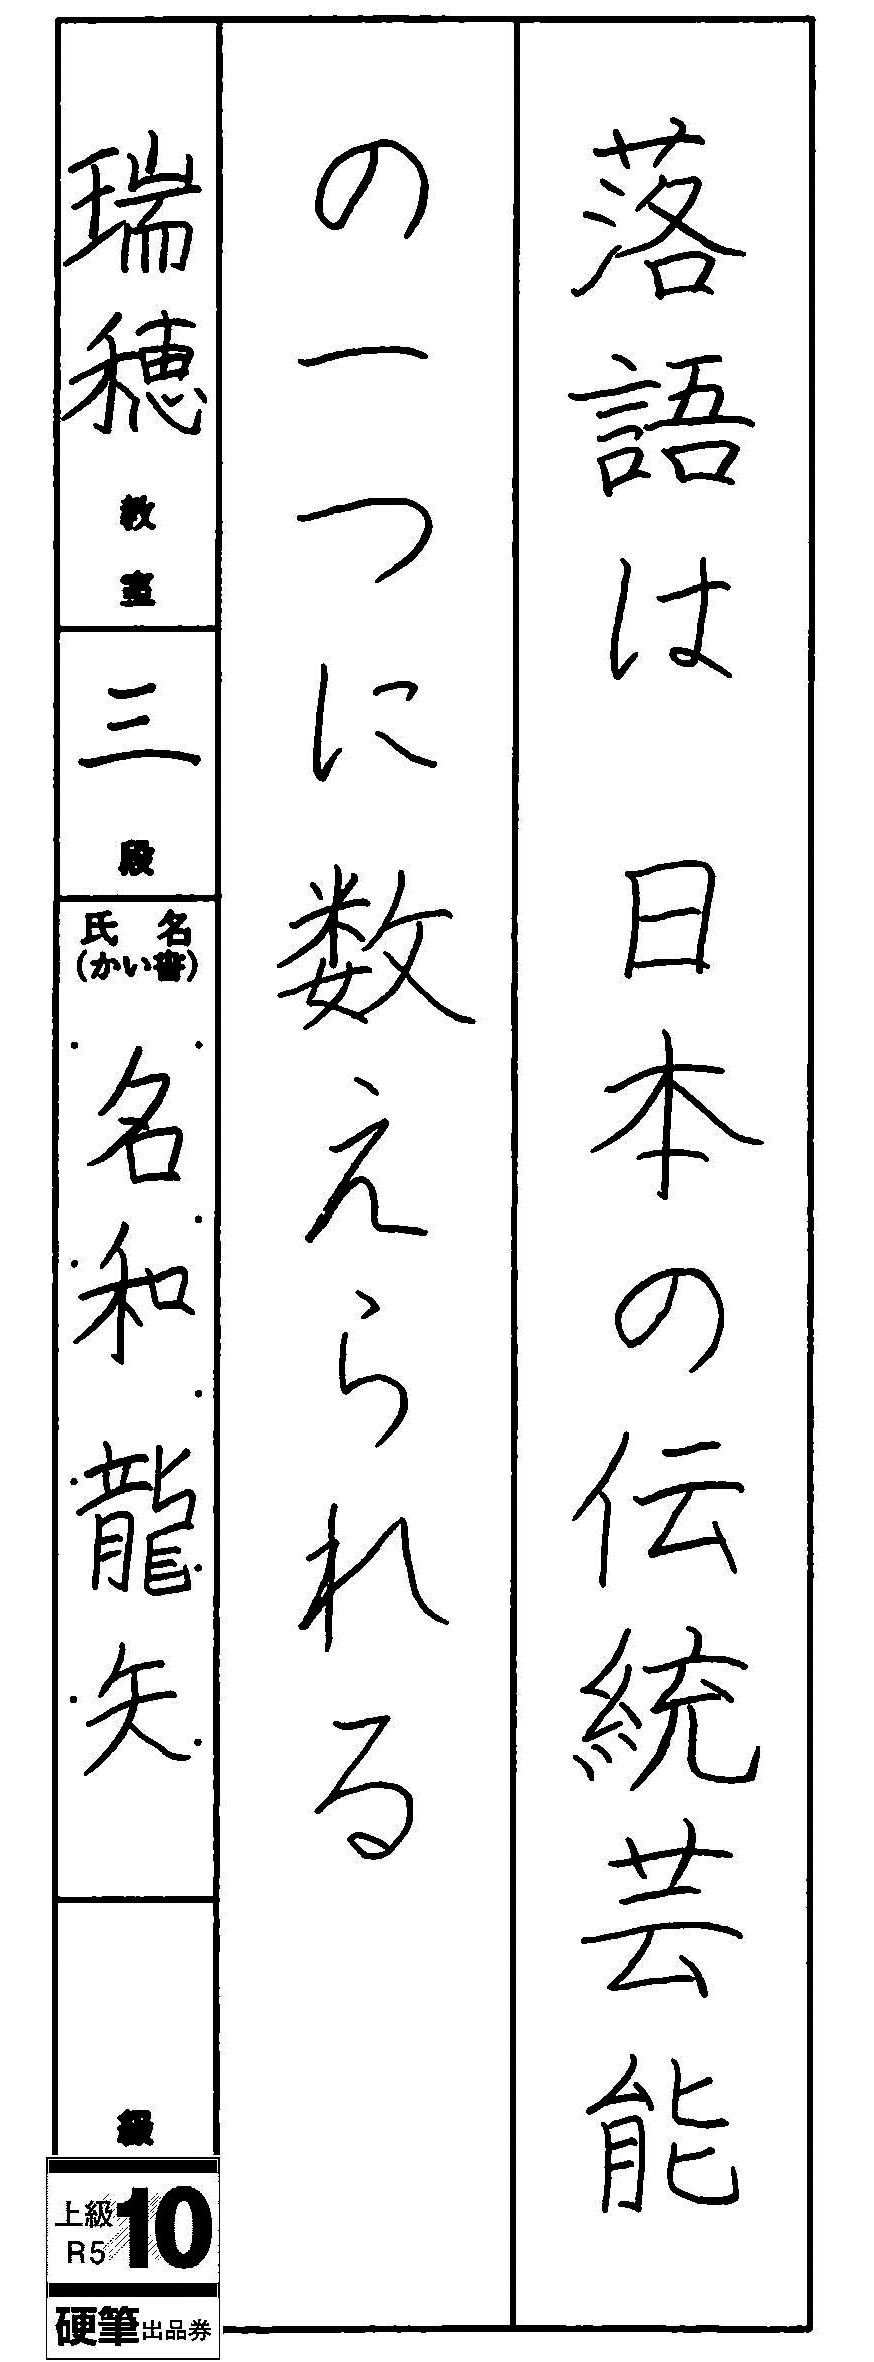 落語は 日本の伝統芸能
の一つに数えられる
瑞穂教室
三段
氏名
(かい書)
名和龍矢
級
上級
R5
10
硬筆出品券